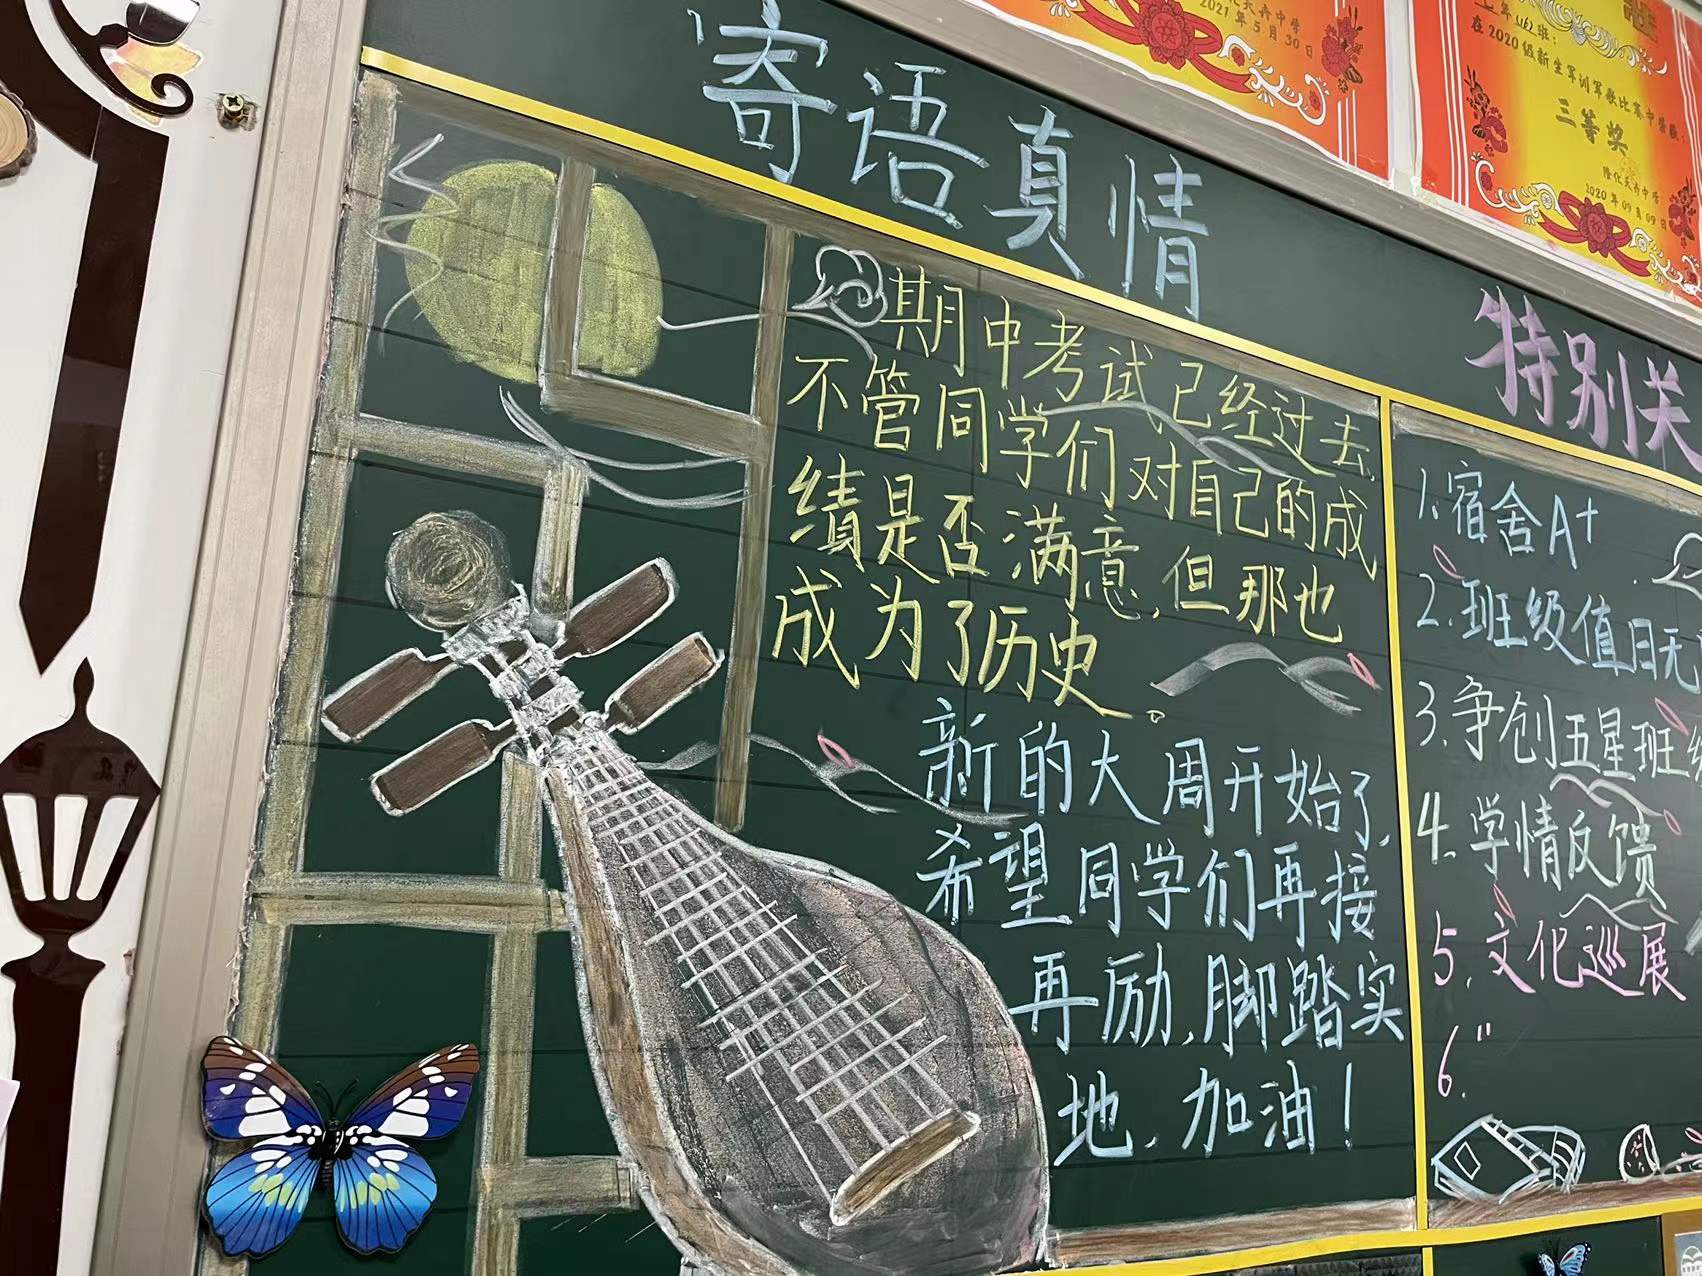 2021年5月30日
在2020级新生军训军歌比赛中荣获:
三等奖
隆化天卉中学
2020年09月09日
寄语真情
期中考试已经过去,
不管同学们对自己的成
绩是否满意,但那也
成为了历史。
新的大周开始了,
希望同学们再接
再励,脚踏实
地,加油!
特别关
1.宿舍A+
2.班级值日无
3.争创五星班级
4.学情反馈
5.文化巡展
6."